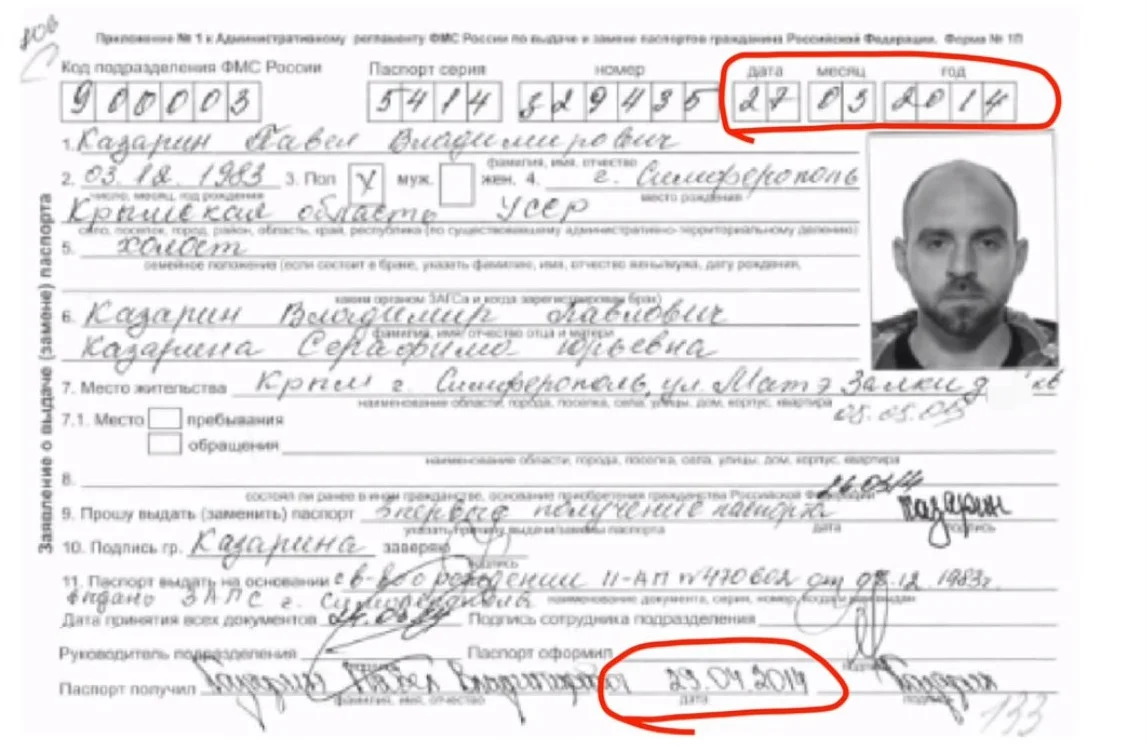 Приложение № 1 к Административному регламенту ФМС России по выдаче и замене паспортов гражданина Российской Федерации. Форма № 1П
Код подразделения ФМС России Паспорт серия номер дата месяц год
900003 5414 329435 27 03 2014
1. Казарин Павел Владимирович
фамилия, имя, отчество
2. 03.12.1983 3. Пол V муж. жен. 4. г. Симферополь
число, месяц, год рождения место рождения
Крымская область УССР
село, поселок, город, район, область, край, республика (по существовавшему административно-территориальному делению)
5. холост
семейное положение (если состоит в браке, указать фамилию, имя, отчество жены/мужа, дату рождения,
каким органом ЗАГСа и когда зарегистрирован брак)
6. Казарин Владимир Павлович
фамилия, имя, отчество отца и матери
Казарина Серафима Юрьевна
7. Место жительства Крым г. Симферополь, ул. Матэ Залки д кв
наименование области, города, поселка, села, улицы, дом, корпус, квартира
7.1. Место пребывания
обращения
наименование области, города, поселка, села, улицы, дом, корпус, квартира
8.
состоял ли ранее в ином гражданстве, основание приобретения гражданства Российской Федерации
9. Прошу выдать (заменить) паспорт впервые получение паспорта Казарин
указать причину выдачи/замены паспорта дата подпись
10. Подпись гр. Казарина заверяю
подпись
11. Паспорт выдать на основании св-во о рождении II-АП №470602 от 08.12.1983г.
выдано ЗАГС г. Симферополя наименование документа, серия, номер, когда и кем выдан
Дата принятия всех документов Подпись сотрудника подразделения
Руководитель подразделения Паспорт оформил
подпись
Паспорт получил Казарин Павел Владимирович 29.04.2014 Казарин
фамилия, имя, отчество дата подпись
133
Заявление о выдаче (замене) паспорта